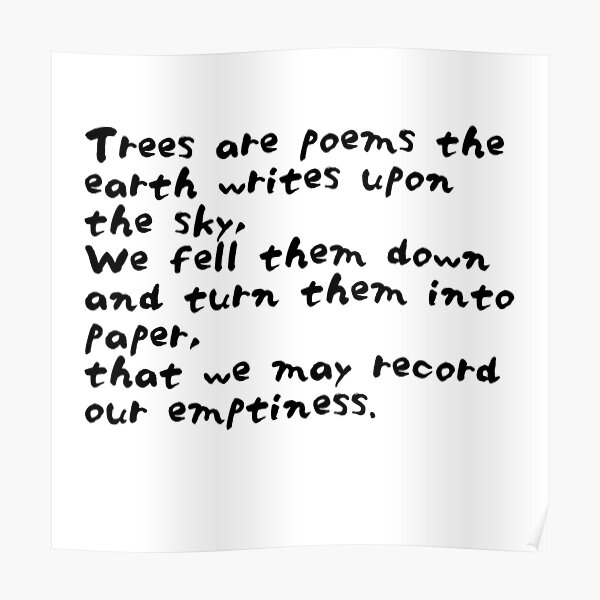 Trees are poems the
earth writes upon
the sky,
We fell them down
and turn them into
paper,
that we may record
our emptiness.